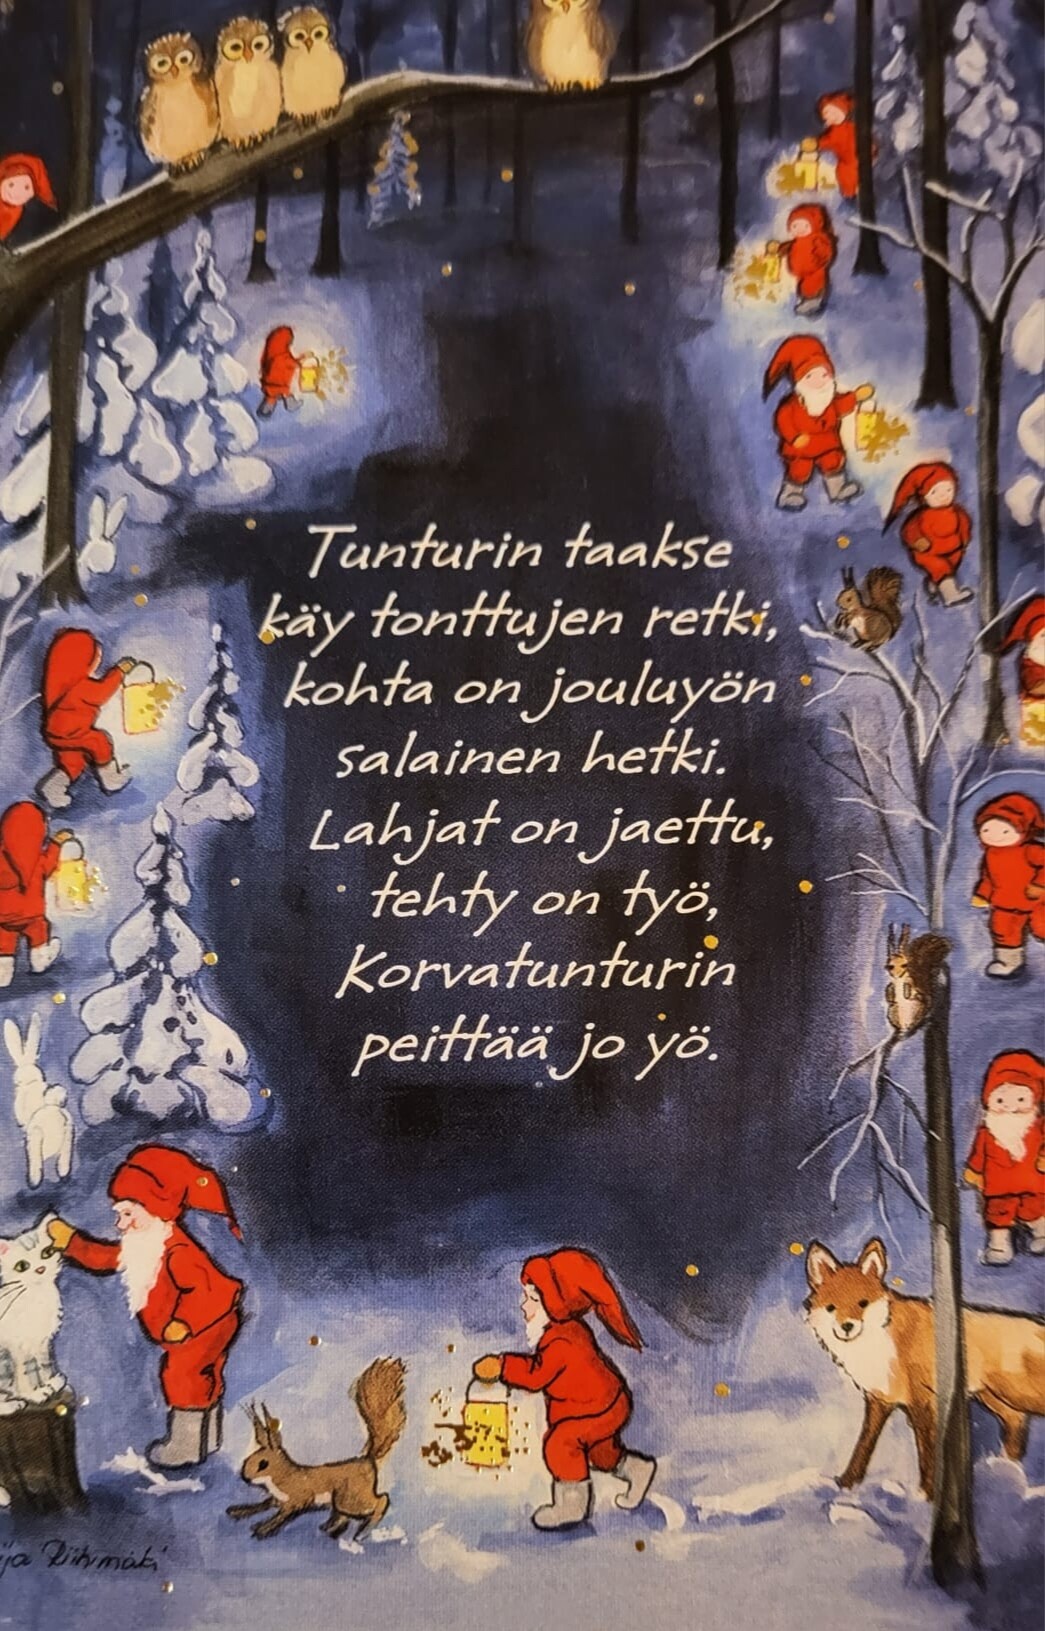 Tunturin taakse
käy tonttujen retki,
kohta on jouluyön
salainen hetki.
Lahjat on jaettu,
tehty on työ,
Korvatunturin
peittää jo yö.
Riihimäki